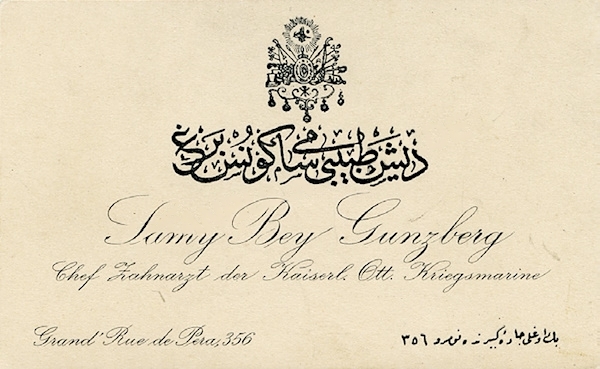 ديش طبيبى سامى كونسبرغ
Samy Bey Gunzberg
Chef Zahnarzt der Kaiserl. Ott. Kriegsmarine
Grand' Rue de Pera, 356
جادۀ نومرو ٣٥٦